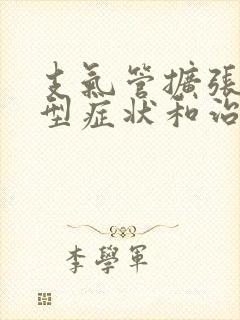 支氣管擴張
型症狀和治
李學軍